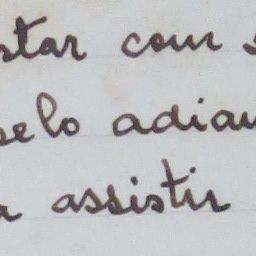 star com
selo adian
a assistir